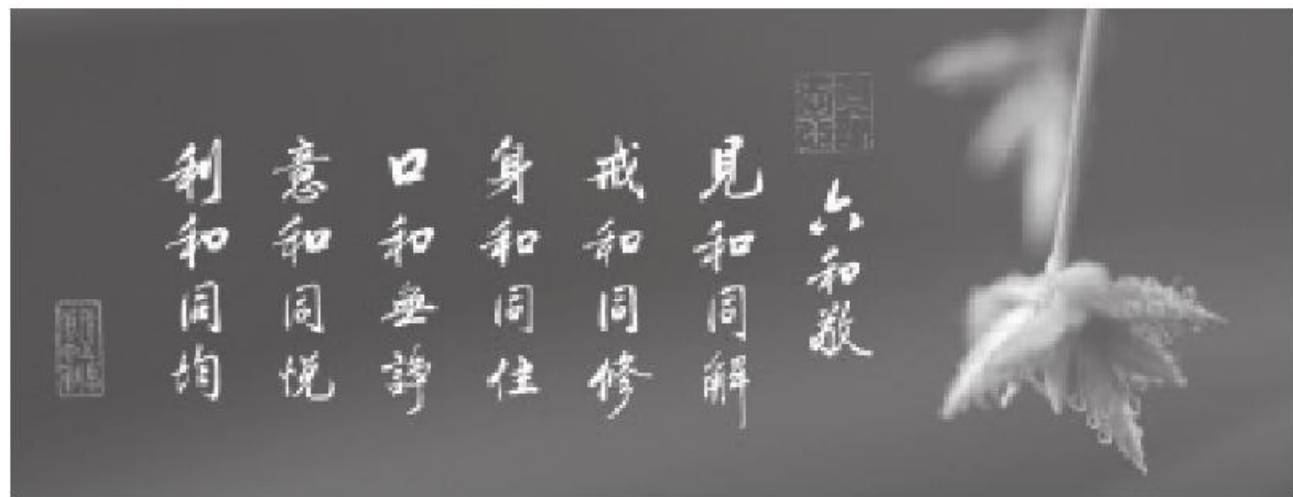 六和敬
見和同解
戒和同修
身和同住
口和無諍
意和同悅
利和同均